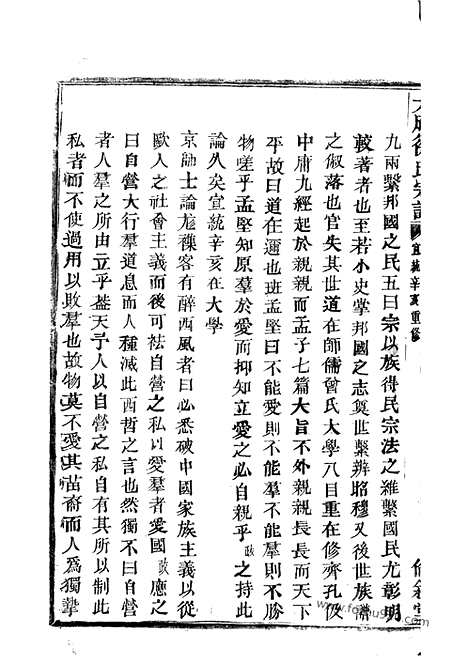 九兩繫邦國之民五曰宗以族得民宗法之維繫國民尤彰明
較著者也至若小史掌邦國之志奠世繫辨昭穆又後世族譜
之俶落也官失其世道在師儒曾氏大學八目重在修齊孔伋
中庸九經起於親親而孟子七篇大旨不外親親長長而天下
平故曰道在邇也班孟堅曰不能愛則不能羣不能羣則不勝
物嗟乎孟堅知原羣於愛而抑知立愛之必自親乎敃之持此
論久矣宣統辛亥在大學
京師士論尨襍客有醉西風者曰必悉破中國家族主義以從
歐人之社會主義而後可祛自營之私以愛羣者愛國敃應之
曰自營大行羣道息而人種減此西哲之言也然獨不曰自營
者人羣之所由立乎葢天予人以自營之私自有其所以制此
私者而不使過用以敗羣也故物莫不愛其苗裔而人爲獨摯
氏宗譜 宣統辛亥重修